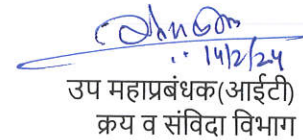 14/2/24
उप महाप्रबंधक(आईटी)
क्रय व संविदा विभाग